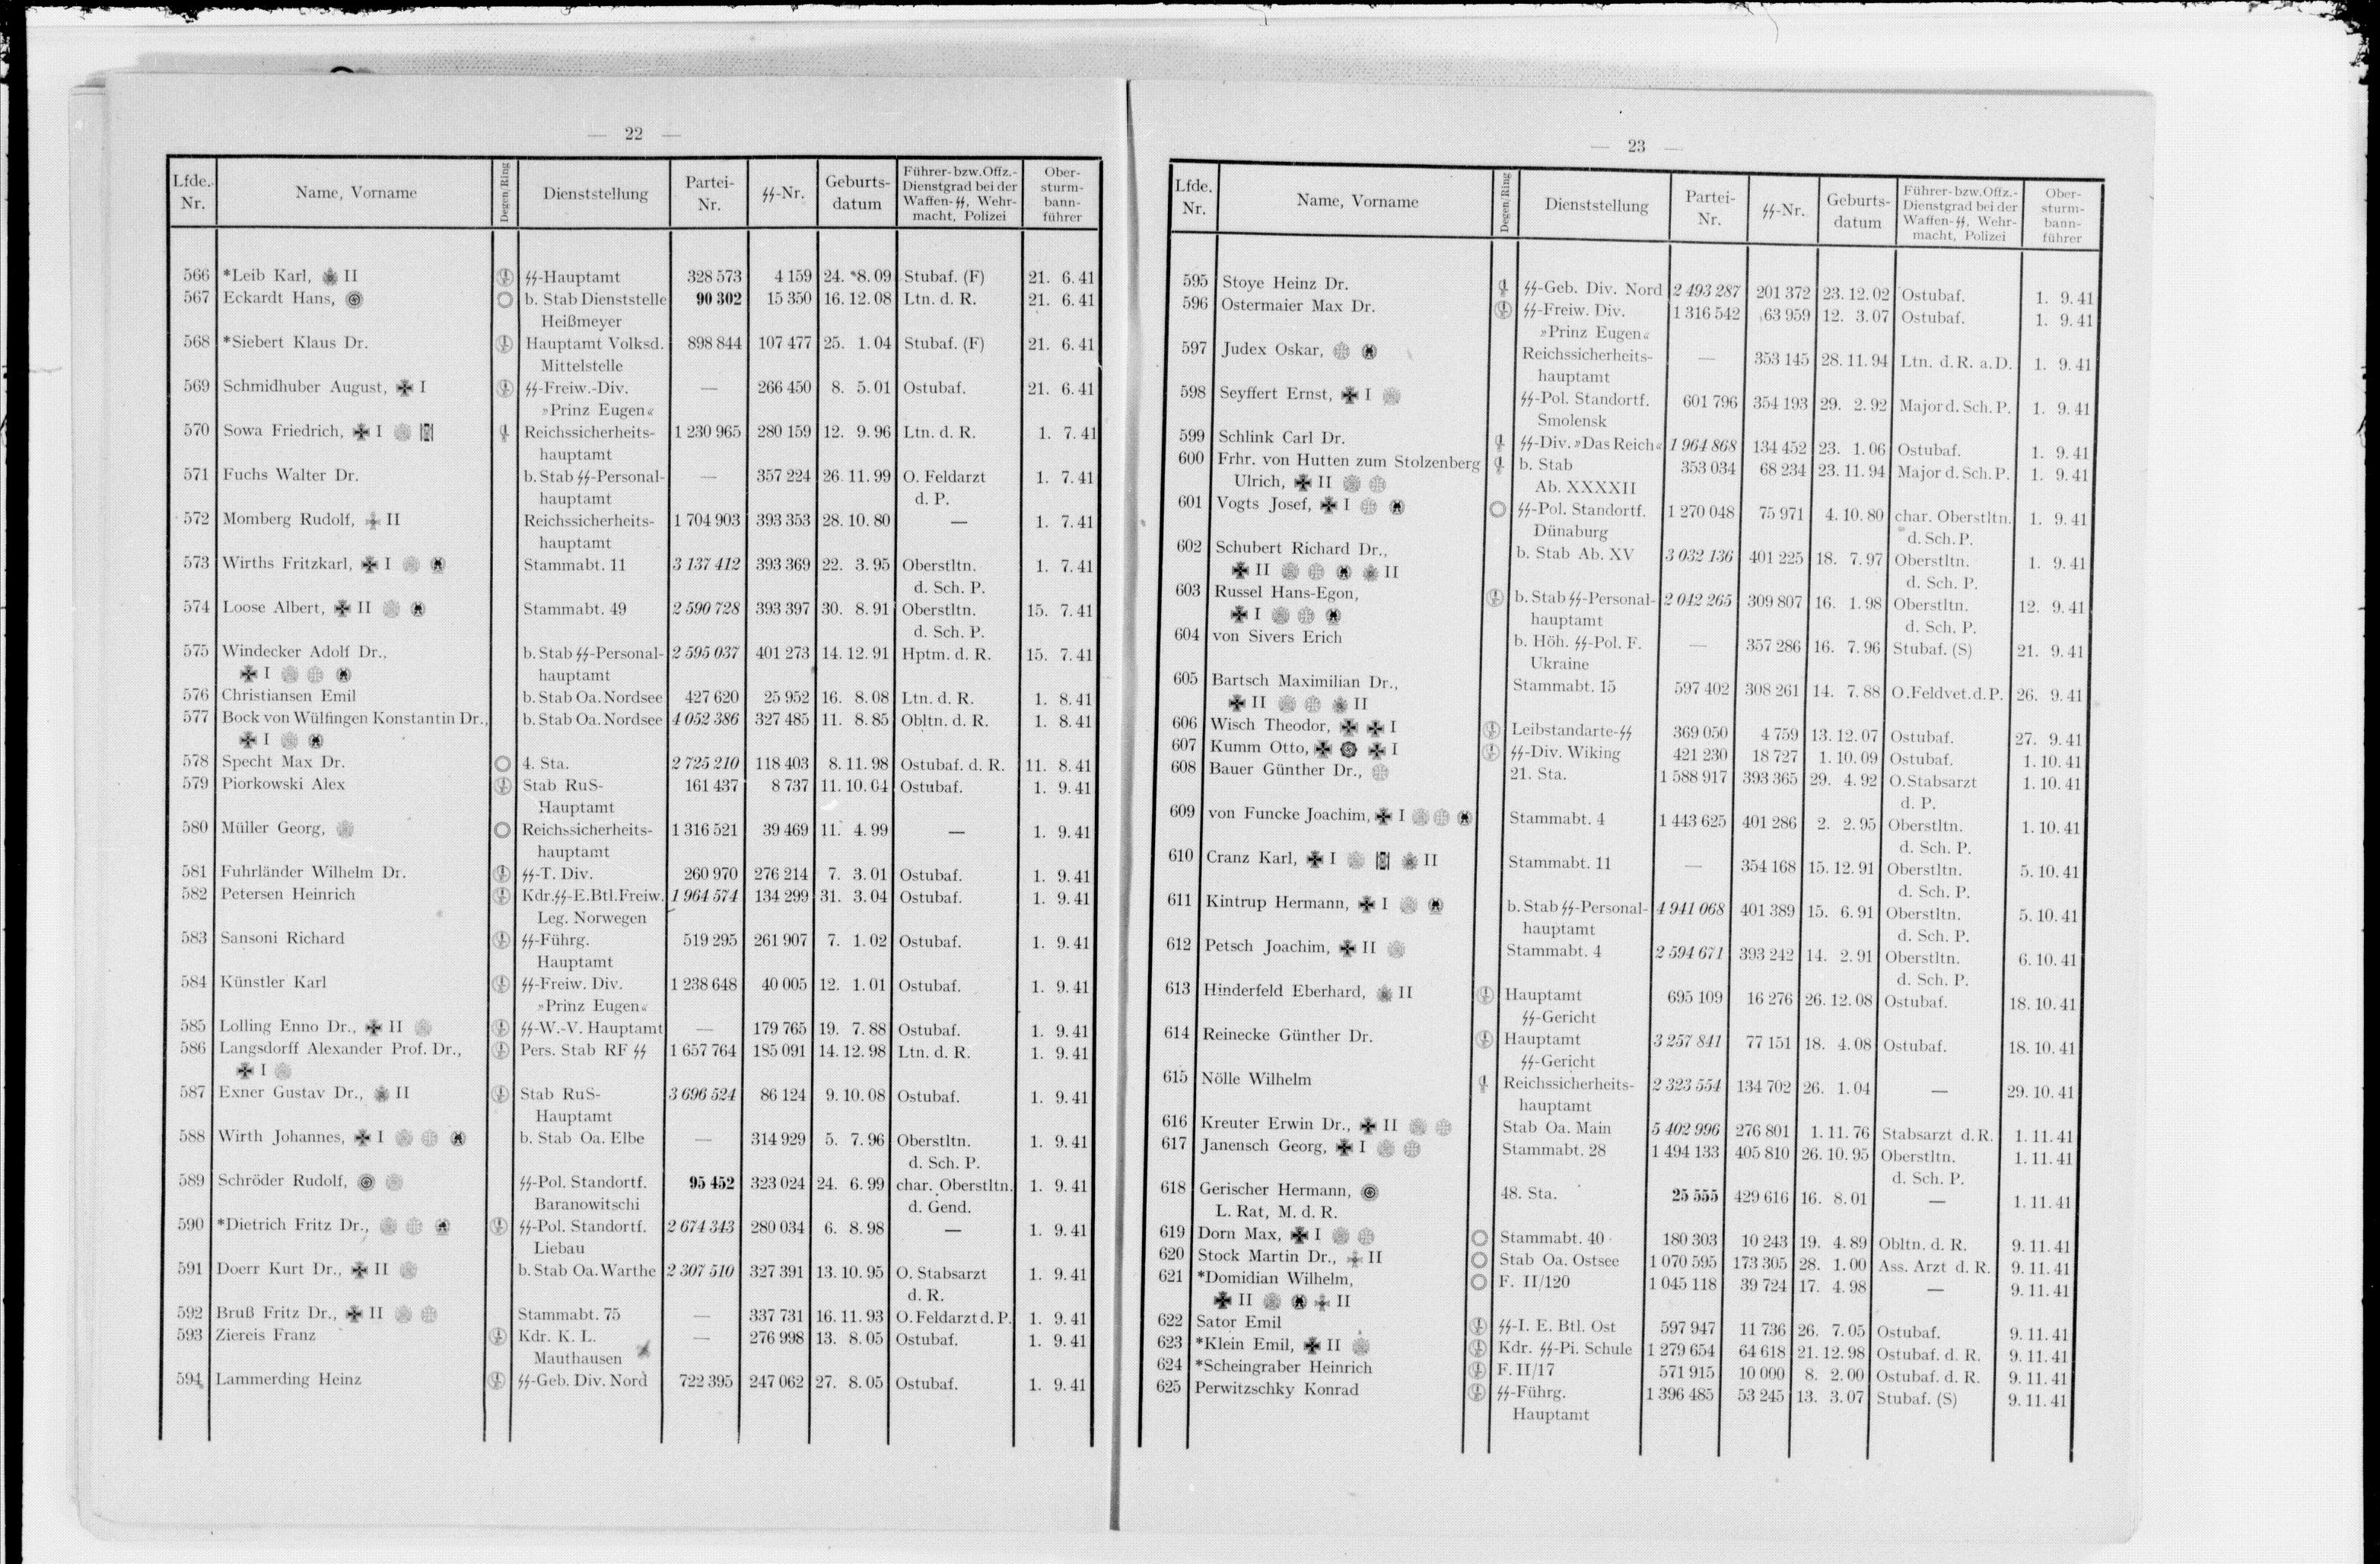 — 22 —
Lfde. Nr. Name, Vorname Degen/Ring Dienststellung Partei-Nr. ᛋᛋ-Nr. Geburts-datum Führer- bzw. Offz.-Dienstgrad bei der Waffen-ᛋᛋ, Wehr-macht, Polizei Ober-sturm-bann-führer
566 *Leib Karl, II ᛋᛋ-Hauptamt 328 573 4 159 24. 8. 09 Stubaf. (F) 21. 6. 41
567 Eckardt Hans, b. Stab Dienststelle 90 302 15 350 16. 12. 08 Ltn. d. R. 21. 6. 41
Heißmeyer
568 *Siebert Klaus Dr. Hauptamt Volksd. 898 844 107 477 25. 1. 04 Stubaf. (F) 21. 6. 41
Mittelstelle
569 Schmidhuber August, I ᛋᛋ-Freiw.-Div. — 266 450 8. 5. 01 Ostubaf. 21. 6. 41
»Prinz Eugen«
570 Sowa Friedrich, I Reichssicherheits- 1 230 965 280 159 12. 9. 96 Ltn. d. R. 1. 7. 41
hauptamt
571 Fuchs Walter Dr. b. Stab ᛋᛋ-Personal- — 357 224 26. 11. 99 O. Feldarzt 1. 7. 41
hauptamt d. P.
572 Momberg Rudolf, II Reichssicherheits- 1 704 903 393 353 28. 10. 80 — 1. 7. 41
hauptamt
573 Wirths Fritzkarl, I Stammabt. 11 3 137 412 393 369 22. 3. 95 Oberstltn. 1. 7. 41
d. Sch. P.
574 Loose Albert, II Stammabt. 49 2 590 728 393 397 30. 8. 91 Oberstltn. 15. 7. 41
d. Sch. P.
575 Windecker Adolf Dr., b. Stab ᛋᛋ-Personal- 2 595 037 401 273 14. 12. 91 Hptm. d. R. 15. 7. 41
I hauptamt
576 Christiansen Emil b. Stab Oa. Nordsee 427 620 25 952 16. 8. 08 Ltn. d. R. 1. 8. 41
577 Bock von Wülfingen Konstantin Dr., b. Stab Oa. Nordsee 4 052 386 327 485 11. 8. 85 Obltn. d. R. 1. 8. 41
I
578 Specht Max Dr. 4. Sta. 2 725 210 118 403 8. 11. 98 Ostubaf. d. R. 11. 8. 41
579 Piorkowski Alex Stab RuS- 161 437 8 737 11. 10. 04 Ostubaf. 1. 9. 41
Hauptamt
580 Müller Georg, Reichssicherheits- 1 316 521 39 469 11. 4. 99 — 1. 9. 41
hauptamt
581 Fuhrländer Wilhelm Dr. ᛋᛋ-T. Div. 260 970 276 214 7. 3. 01 Ostubaf. 1. 9. 41
582 Petersen Heinrich Kdr.ᛋᛋ-E.Btl.Freiw. 1 964 574 134 299 31. 3. 04 Ostubaf. 1. 9. 41
Leg. Norwegen
583 Sansoni Richard ᛋᛋ-Führg. 519 295 261 907 7. 1. 02 Ostubaf. 1. 9. 41
Hauptamt
584 Künstler Karl ᛋᛋ-Freiw. Div. 1 238 648 40 005 12. 1. 01 Ostubaf. 1. 9. 41
»Prinz Eugen«
585 Lolling Enno Dr., II ᛋᛋ-W.-V. Hauptamt — 179 765 19. 7. 88 Ostubaf. 1. 9. 41
586 Langsdorff Alexander Prof. Dr., Pers. Stab RF ᛋᛋ 1 657 764 185 091 14. 12. 98 Ltn. d. R. 1. 9. 41
I
587 Exner Gustav Dr., II Stab RuS- 3 696 524 86 124 9. 10. 08 Ostubaf. 1. 9. 41
Hauptamt
588 Wirth Johannes, I b. Stab Oa. Elbe — 314 929 5. 7. 96 Oberstltn. 1. 9. 41
d. Sch. P.
589 Schröder Rudolf, ᛋᛋ-Pol. Standortf. 95 452 323 024 24. 6. 99 char. Oberstltn. 1. 9. 41
Baranowitschi d. Gend.
590 *Dietrich Fritz Dr., ᛋᛋ-Pol. Standortf. 2 674 343 280 034 6. 8. 98 — 1. 9. 41
Liebau
591 Doerr Kurt Dr., II b. Stab Oa. Warthe 2 307 510 327 391 13. 10. 95 O. Stabsarzt 1. 9. 41
d. R.
592 Bruß Fritz Dr., II Stammabt. 75 — 337 731 16. 11. 93 O. Feldarzt d. P. 1. 9. 41
593 Ziereis Franz Kdr. K. L. — 276 998 13. 8. 05 Ostubaf. 1. 9. 41
Mauthausen
594 Lammerding Heinz ᛋᛋ-Geb. Div. Nord 722 395 247 062 27. 8. 05 Ostubaf. 1. 9. 41
— 23 —
Lfde. Nr. Name, Vorname Degen/Ring Dienststellung Partei-Nr. ᛋᛋ-Nr. Geburts-datum Führer- bzw. Offz.-Dienstgrad bei der Waffen-ᛋᛋ, Wehr-macht, Polizei Ober-sturm-bann-führer
595 Stoye Heinz Dr. ᛋᛋ-Geb. Div. Nord 2 493 287 201 372 23. 12. 02 Ostubaf. 1. 9. 41
596 Ostermaier Max Dr. ᛋᛋ-Freiw. Div. 1 316 542 63 959 12. 3. 07 Ostubaf. 1. 9. 41
»Prinz Eugen«
597 Judex Oskar, Reichssicherheits- — 353 145 28. 11. 94 Ltn. d. R. a. D. 1. 9. 41
hauptamt
598 Seyffert Ernst, I ᛋᛋ-Pol. Standortf. 601 796 354 193 29. 2. 92 Major d. Sch. P. 1. 9. 41
Smolensk
599 Schlink Carl Dr. ᛋᛋ-Div. »Das Reich« 1 964 868 134 452 23. 1. 06 Ostubaf. 1. 9. 41
600 Frhr. von Hutten zum Stolzenberg b. Stab 353 034 68 234 23. 11. 94 Major d. Sch. P. 1. 9. 41
Ulrich, II Ab. XXXXII
601 Vogts Josef, I ᛋᛋ-Pol. Standortf. 1 270 048 75 971 4. 10. 80 char. Oberstltn. 1. 9. 41
Dünaburg d. Sch. P.
602 Schubert Richard Dr., b. Stab Ab. XV 3 032 136 401 225 18. 7. 97 Oberstltn. 1. 9. 41
II II d. Sch. P.
603 Russel Hans-Egon, b. Stab ᛋᛋ-Personal- 2 042 265 309 807 16. 1. 98 Oberstltn. 12. 9. 41
I hauptamt d. Sch. P.
604 von Sivers Erich b. Höh. ᛋᛋ-Pol. F. — 357 286 16. 7. 96 Stubaf. (S) 21. 9. 41
Ukraine
605 Bartsch Maximilian Dr., Stammabt. 15 597 402 308 261 14. 7. 88 O. Feldvet. d. P. 26. 9. 41
II II
606 Wisch Theodor, I Leibstandarte-ᛋᛋ 369 050 4 759 13. 12. 07 Ostubaf. 27. 9. 41
607 Kumm Otto, I ᛋᛋ-Div. Wiking 421 230 18 727 1. 10. 09 Ostubaf. 1. 10. 41
608 Bauer Günther Dr., 21. Sta. 1 588 917 393 365 29. 4. 92 O. Stabsarzt 1. 10. 41
d. P.
609 von Funcke Joachim, I Stammabt. 4 1 443 625 401 286 2. 2. 95 Oberstltn. 1. 10. 41
d. Sch. P.
610 Cranz Karl, I II Stammabt. 11 — 354 168 15. 12. 91 Oberstltn. 5. 10. 41
d. Sch. P.
611 Kintrup Hermann, I b. Stab ᛋᛋ-Personal- 4 941 068 401 389 15. 6. 91 Oberstltn. 5. 10. 41
hauptamt d. Sch. P.
612 Petsch Joachim, II Stammabt. 4 2 594 671 393 242 14. 2. 91 Oberstltn. 6. 10. 41
d. Sch. P.
613 Hinderfeld Eberhard, II Hauptamt 695 109 16 276 26. 12. 08 Ostubaf. 18. 10. 41
ᛋᛋ-Gericht
614 Reinecke Günther Dr. Hauptamt 3 257 841 77 151 18. 4. 08 Ostubaf. 18. 10. 41
ᛋᛋ-Gericht
615 Nölle Wilhelm Reichssicherheits- 2 323 554 134 702 26. 1. 04 — 29. 10. 41
hauptamt
616 Kreuter Erwin Dr., II Stab Oa. Main 5 402 996 276 801 1. 11. 76 Stabsarzt d. R. 1. 11. 41
617 Janensch Georg, I Stammabt. 28 1 494 133 405 810 26. 10. 95 Oberstltn. 1. 11. 41
d. Sch. P.
618 Gerischer Hermann, 48. Sta. 25 555 429 616 16. 8. 01 — 1. 11. 41
L. Rat, M. d. R.
619 Dorn Max, I Stammabt. 40 180 303 10 243 19. 4. 89 Obltn. d. R. 9. 11. 41
620 Stock Martin Dr., II Stab Oa. Ostsee 1 070 595 173 305 28. 1. 00 Ass. Arzt d. R. 9. 11. 41
621 *Domidian Wilhelm, F. II/120 1 045 118 39 724 17. 4. 98 — 9. 11. 41
II II
622 Sator Emil ᛋᛋ-I. E. Btl. Ost 597 947 11 736 26. 7. 05 Ostubaf. 9. 11. 41
623 *Klein Emil, II Kdr. ᛋᛋ-Pi. Schule 1 279 654 64 618 21. 12. 98 Ostubaf. d. R. 9. 11. 41
624 *Scheingraber Heinrich F. II/17 571 915 10 000 8. 2. 00 Ostubaf. d. R. 9. 11. 41
625 Perwitzschky Konrad ᛋᛋ-Führg. 1 396 485 53 245 13. 3. 07 Stubaf. (S) 9. 11. 41
Hauptamt